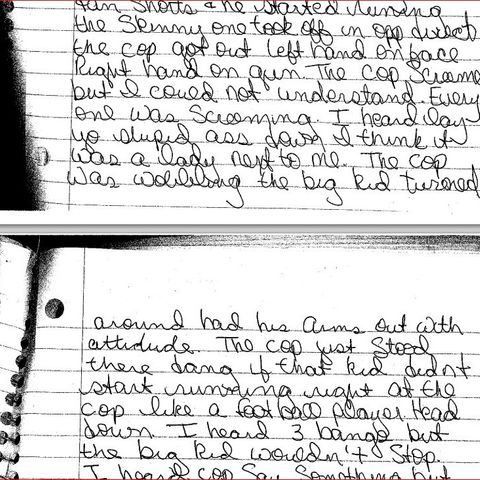 tan Shorts & he started running
the Skinny one took off in opp direct
the cop got out left hand on face
Right hand on gun. The cop Scream
but I could not understand. Every
one was Screaming. I heard lay
yo stupid ass down I think it
was a lady next to me. The cop
was wobbling the big kid turned
around had his arms out with
attitude. The cop just Stood
there dang if that kid didn't
start running right at the
cop like a football player Head
down I heard 3 bangs but
the big kid wouldn't Stop.
I heard cop Say Something but